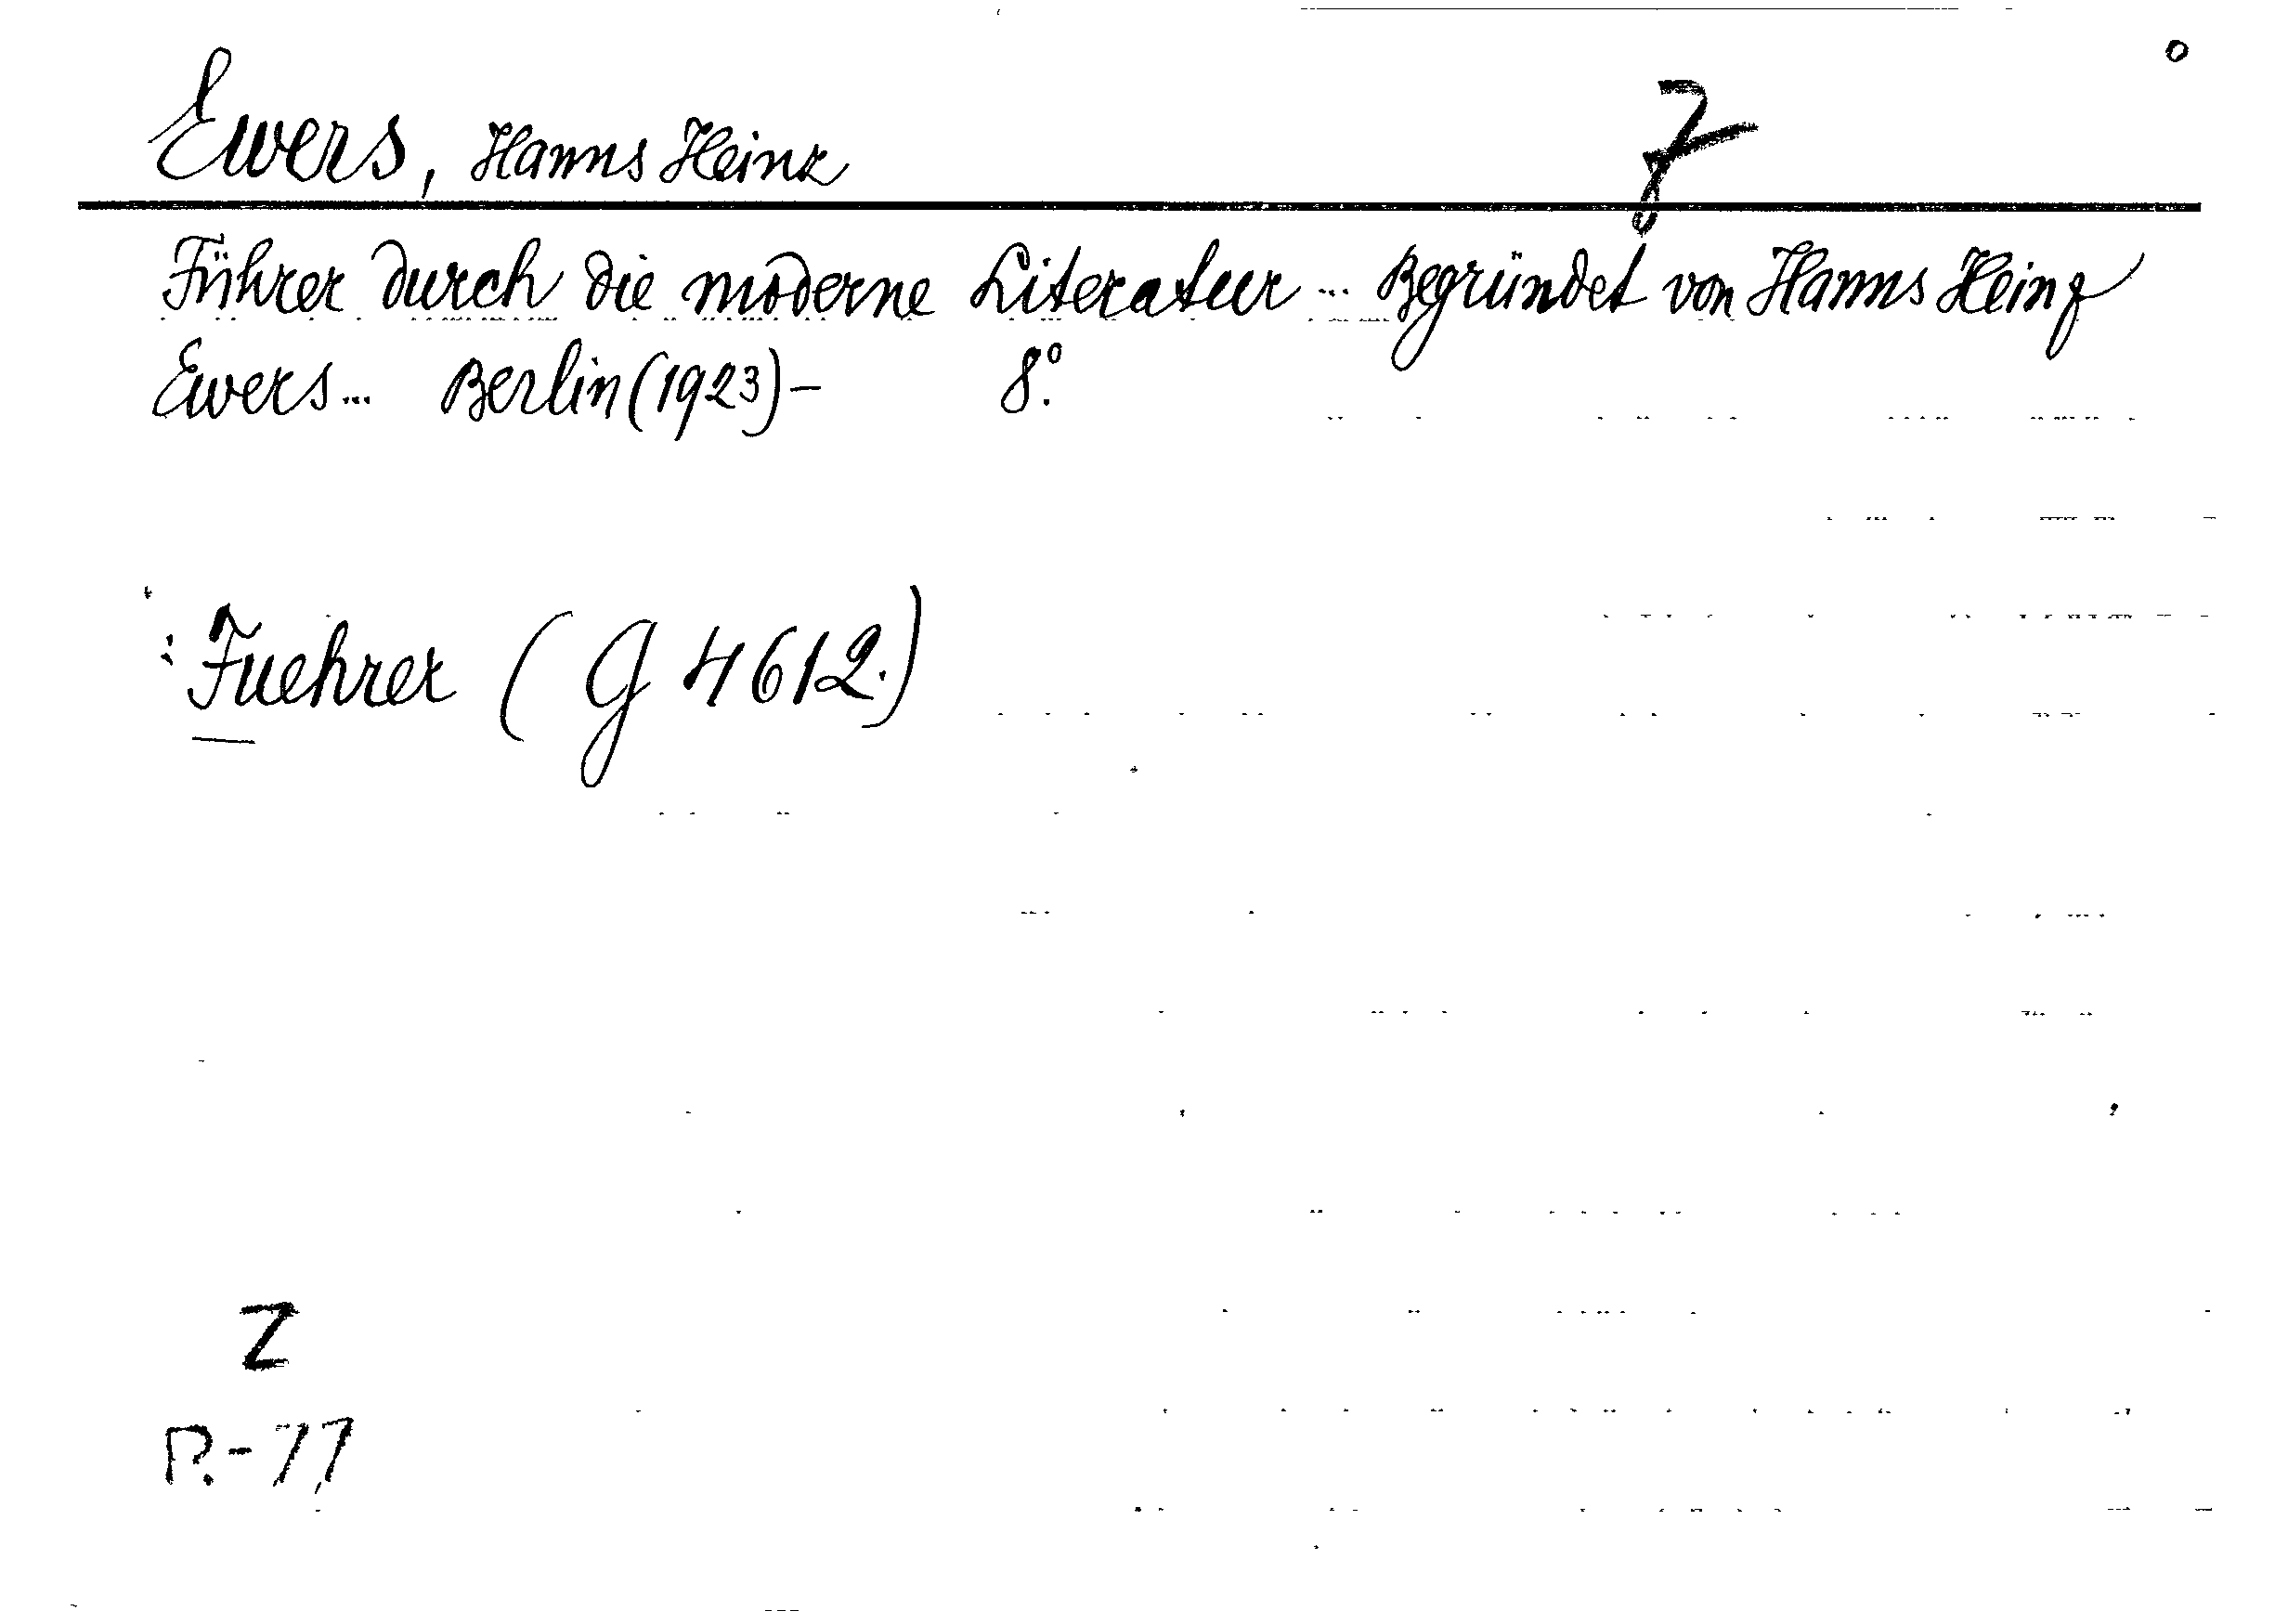 Ewers, Hanns Heinz
Führer durch die moderne Literatur ... Begründet von Hanns Heinz
Ewers ... Berlin (1923)- 8º.
: Fuehrer (G 4612.)
Z
P.-77